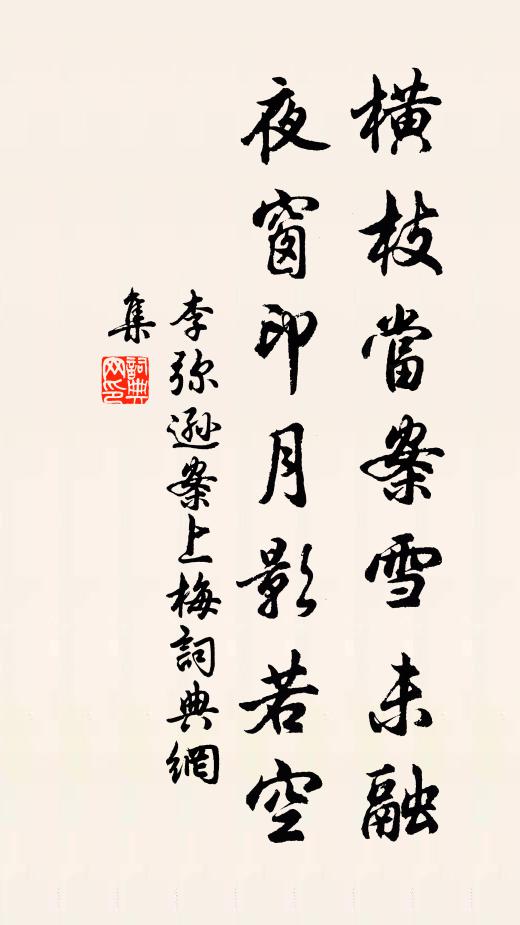 橫枝當案雪未融
夜窗印月影若空
李弥遜案上梅詞典網
集
詞典
网印